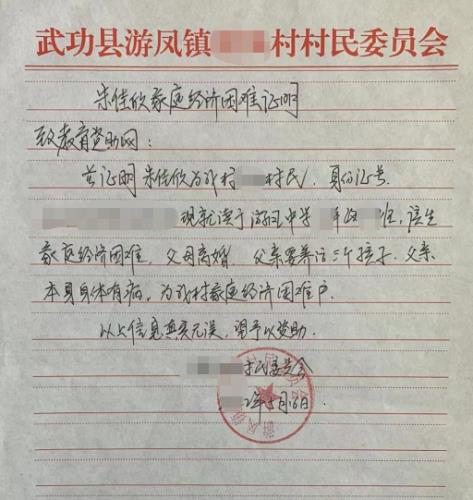 武功县游凤镇 村村民委员会
朱佳欣家庭经济困难证明
致教育资助网：
兹证明朱佳欣为我村 村民，身份证号
现就读于游凤中学 年级 班，该生
家庭经济困难，父母离婚，父亲要养活三个孩子，父亲
本身身体有病，为我村家庭经济困难户。
以上信息真实无误，望予以资助。
村民委员会
2年5月16日